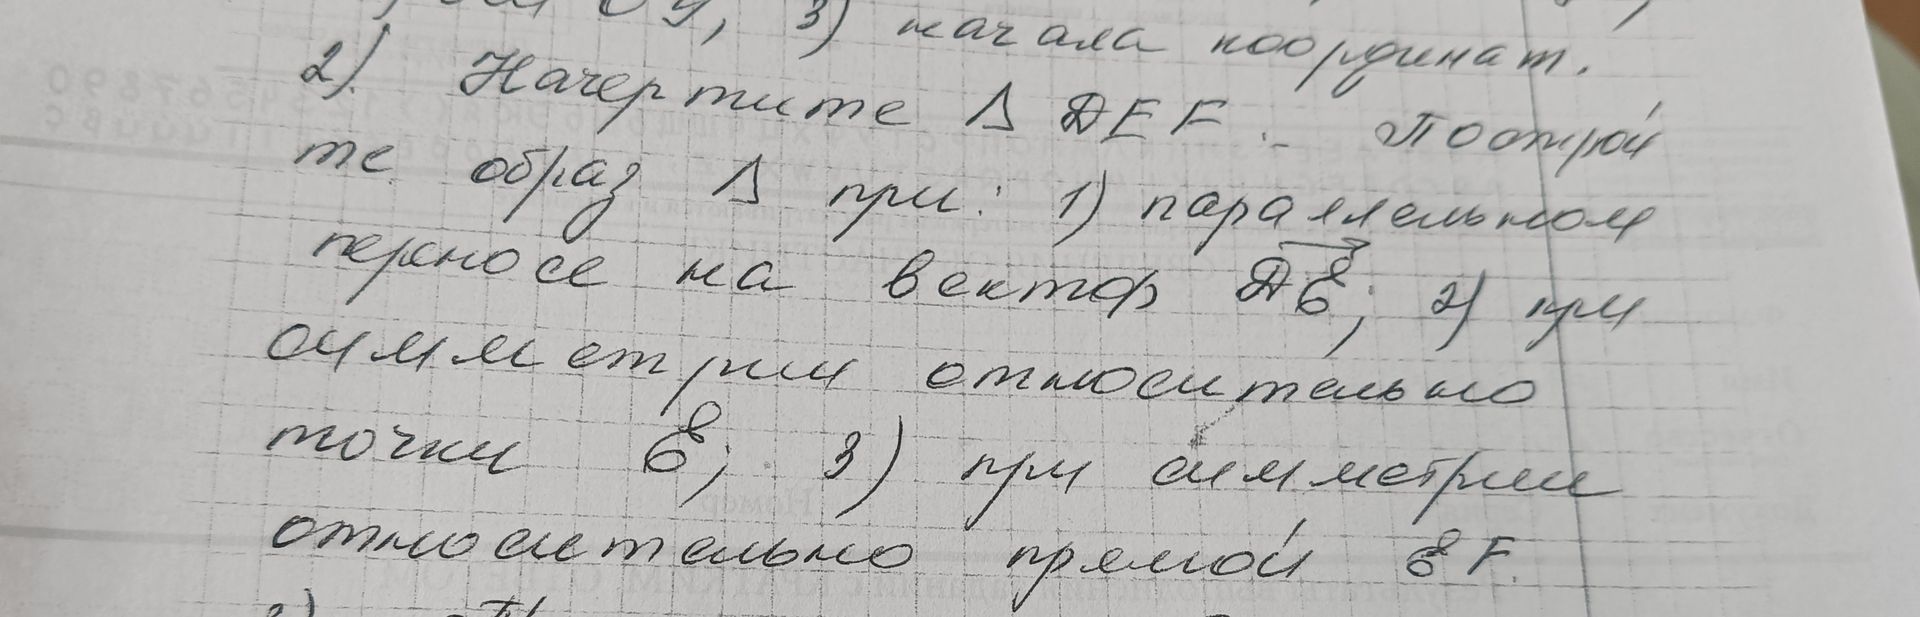 OY, 3) начала координат.
2). Начертите Δ DEF. Построй
те образ Δ при: 1) параллельном
переносе на вектор DE; 2) при
симметрии относительно
точки E; 3) при симметрии
относительно прямой EF.